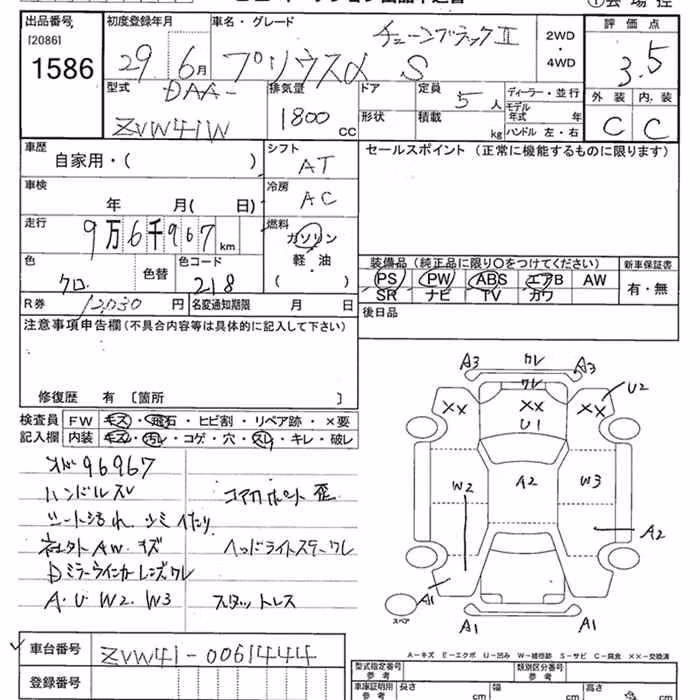 出品番号
[2086]
1586
初度登録年月
29年 6月
車名・グレード
チューンブラックⅡ
プリウスα S
2WD
・
4WD
評価点
3.5
外装 内装
C C
型式
DAA-
ZVW41W
排気量
1800 CC
ドア
形状
定員
5人
積載
kg
ディーラー・並行
モデル年式 年
ハンドル 左・右
車歴
自家用・( )
シフト
AT
セールスポイント (正常に機能するものに限ります)
車検
年 月( 日)
冷房
AC
走行
9万6千967km
燃料
ガソリン
軽・油
( )
色
クロ
色替
色コード
218
装備品 (純正品に限り○をつけてください)
PS PW ABS エアB AW
SR ナビ TV カワ
新車保証書
有・無
R券 12,030円
名変通知期限 月 日
後日品
注意事項申告欄(不具合内容等は具体的に記入して下さい)
修復歴 有 [箇所 ]
検査員
記入欄
FW キズ・飛石・ヒビ割・リペア跡・×要
内装 キズ・汚レ・コゲ・穴・スレ・キレ・破レ
メーター96967
ハンドルスレ
コアサポート歪
シート汚れ、シミ
ヘッドライトステークレ
DミラーウィンカーレンズワレA・U W2、W3
スタットレス
A3 ワレ A3
ワレ
XX XX XX
U2
U1
W2 A2 W3
A2
A1
A1 A1
スペア
A-キズ E-エクボ U-凹み W-補修跡 S-サビ C-腐食 XX-交換済
車台番号
ZVW41-0061444
登録番号
型式指定番号
参考
類別区分番号
参考
車庫証明用
参考
長さ cm
幅 cm
高さ cm